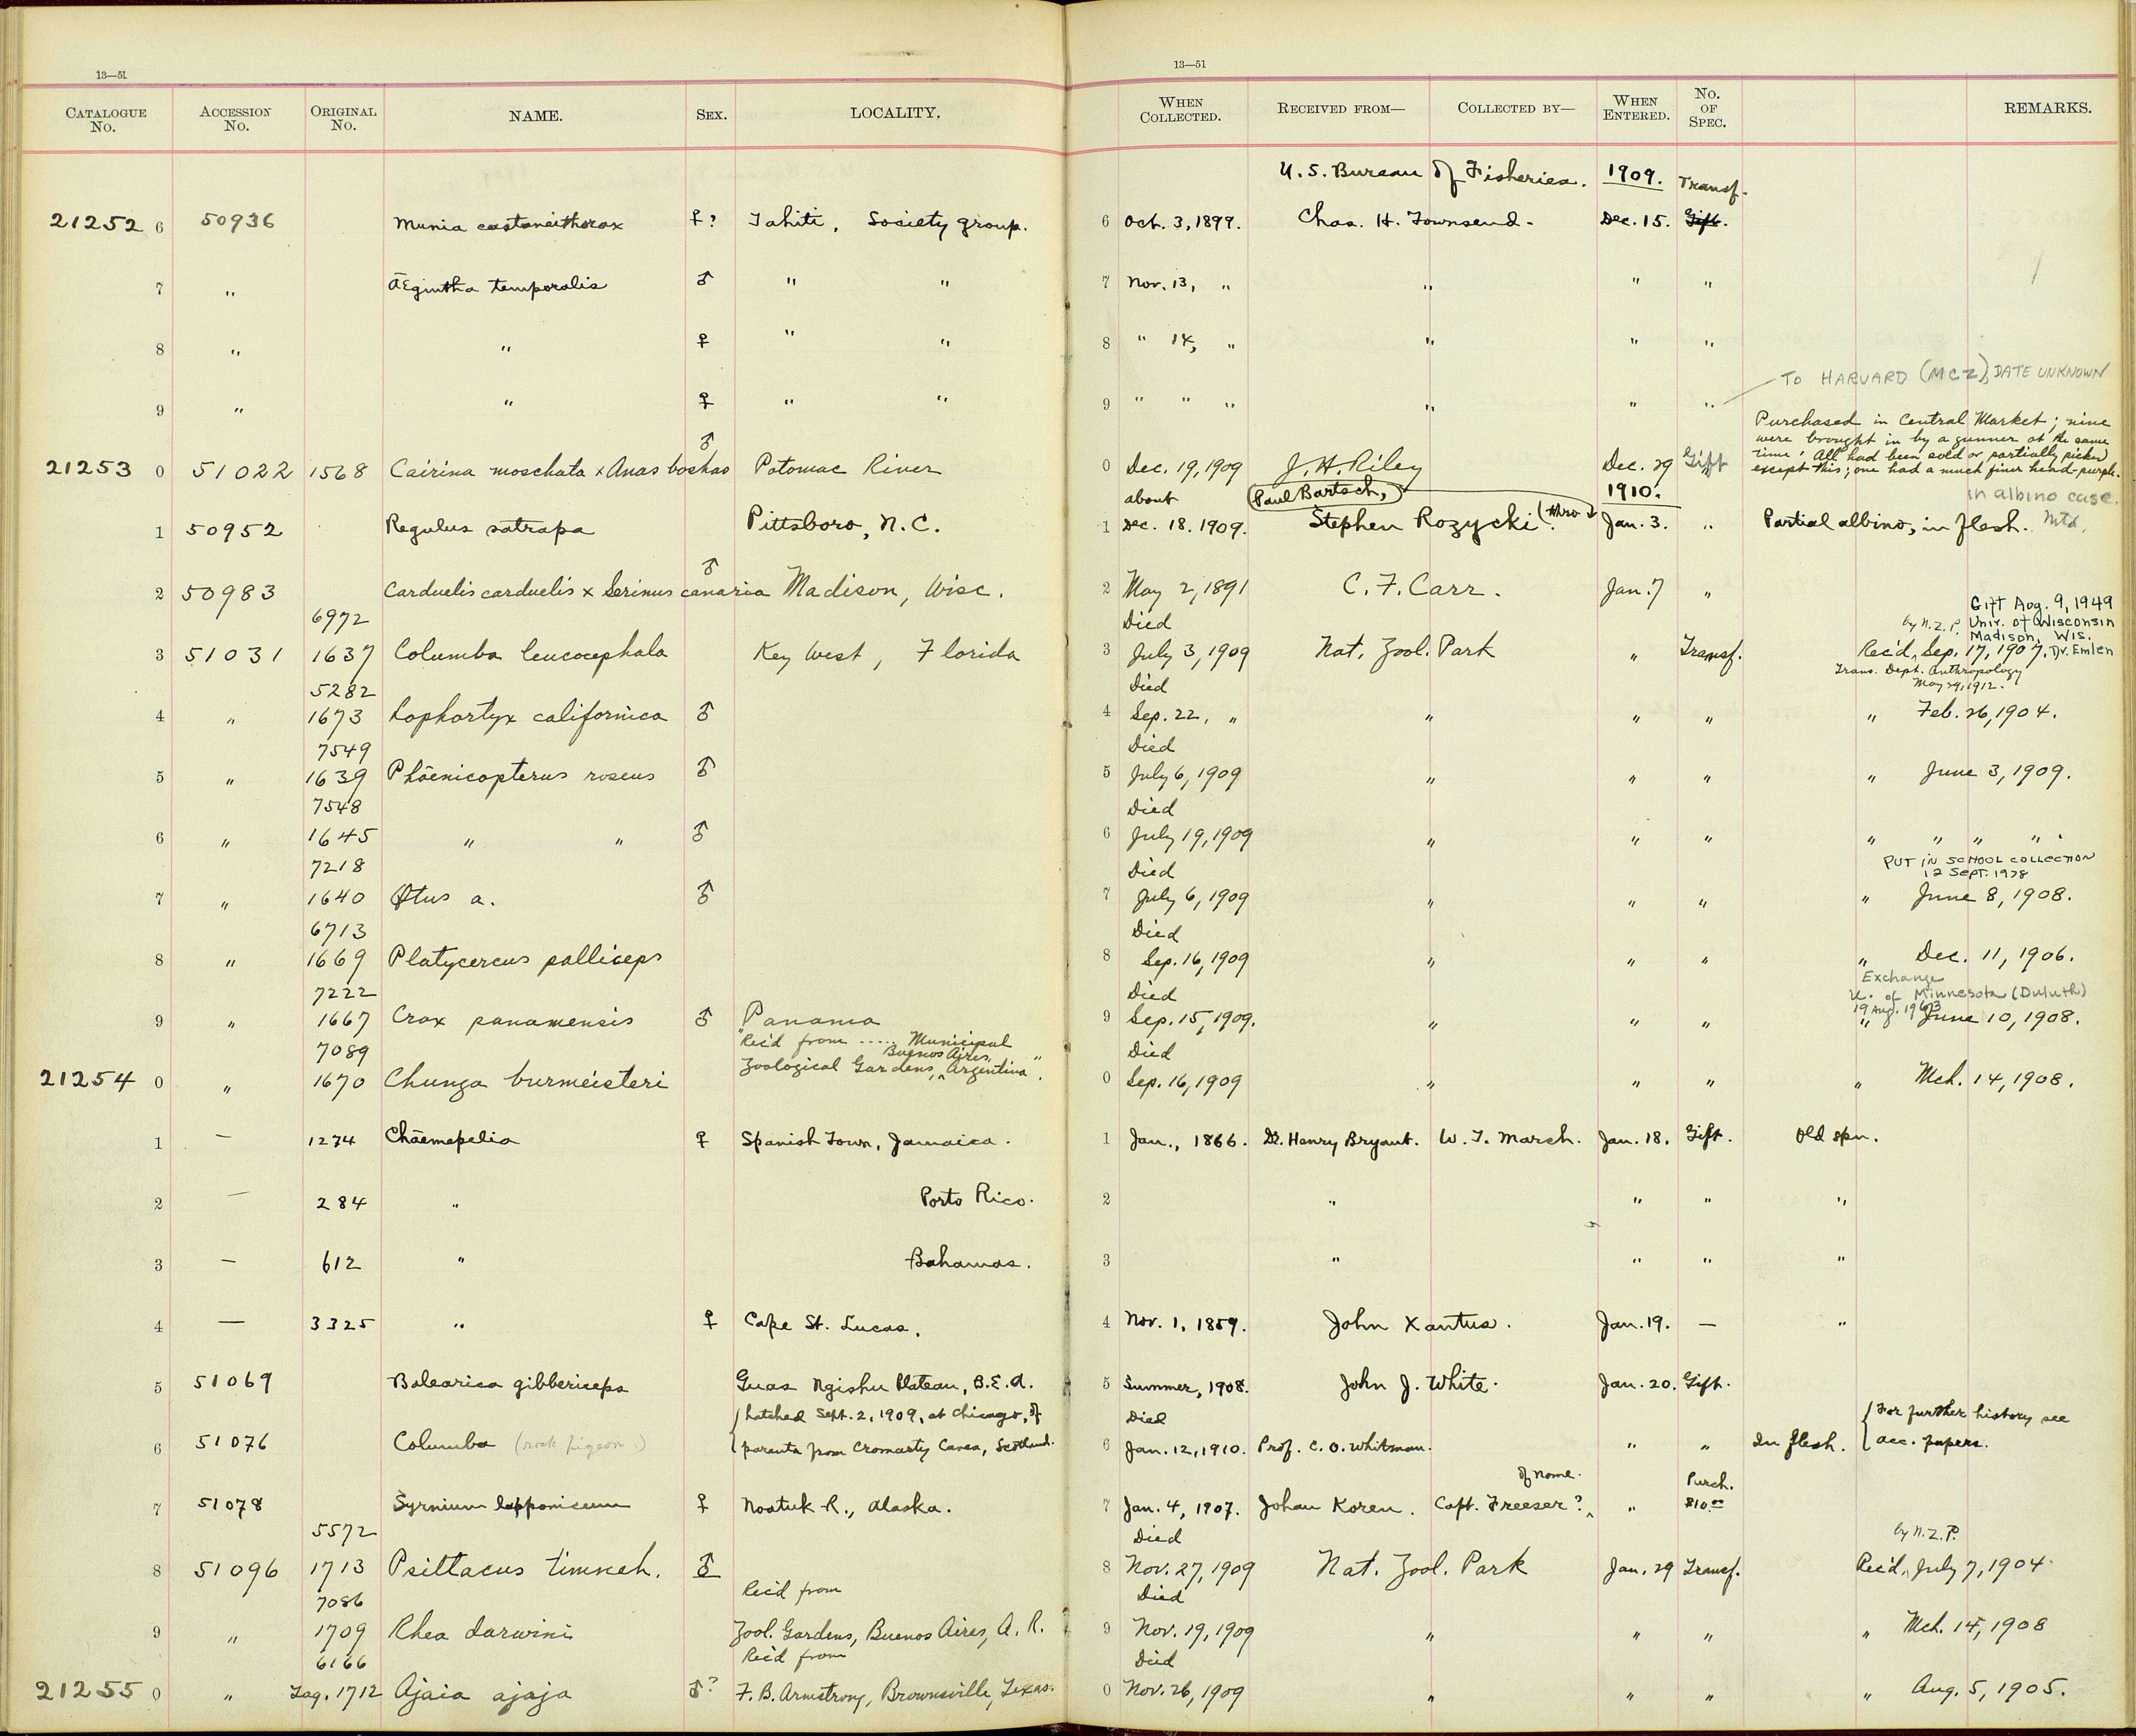 13—51
13—51
CATALOGUE No. ACCESSION No. ORIGINAL No. NAME. SEX. LOCALITY. WHEN COLLECTED. RECEIVED FROM— COLLECTED BY— WHEN ENTERED. No. OF SPEC. REMARKS.
U. S. Bureau of Fisheries. 1909. Transf.
21252 6 50936 Munia castaneithorax ♀? Tahiti, Society group. 6 Oct. 3, 1899. Chas. H. Townsend - Dec. 15. Gift.
7 " Ægintha temporalis ♂ " " 7 Nov. 13, " " " "
8 " " ♀ " " 8 " 14, " " " "
To HARVARD (MCZ), DATE UNKNOWN
9 " " ♀ " " 9 " " " " " "
Purchased in Central Market; nine
were brought in by a gunner at the same
time! All had been sold or partially picked
except this; one had a much finer head-purple.
21253 0 51022 1568 Cairina moschata x Anas boschas ♂ Potomac River 0 Dec. 19, 1909 J. H. Riley Dec. 29 Gift
in albino case.
about Paul Bartsch, 1910.
1 50952 Regulus satrapa Pittsboro, N.C. 1 Dec. 18. 1909. Stephen Rozycki (thro Jan. 3. " Partial albino, in flesh. Mtd.
2 50983 Carduelis carduelis x Serinus canaria ♂ Madison, Wisc. 2 May 2, 1891 C. F. Carr. Jan. 7 "
Gift Aug. 9, 1949
Univ. of Wisconsin
Madison, Wis.
Dr. Emlen
6972 Died by N.Z.P.
3 51031 1637 Columba leucocephala Key West, Florida 3 July 3, 1909 Nat. Zool. Park " Transf. Rec'd, Sep. 17, 1907.
Trans. Dept. Anthropology
May 24, 1912.
5282 Died
4 " 1673 Lophortyx californica ♂ 4 Sep. 22, " " " " " Feb. 26, 1904.
7549 Died
5 " 1639 Phœnicopterus roseus ♂ 5 July 6, 1909 " " " " June 3, 1909.
7548 Died
6 " 1645 " " ♂ 6 July 19, 1909 " " " " " " "
PUT IN SCHOOL COLLECTION
12 SEPT. 1978
7218 Died
7 " 1640 Otus a. ♂ 7 July 6, 1909 " " " " June 8, 1908.
6713 Died
8 " 1669 Platycercus palliceps 8 Sep. 16, 1909 " " " " Dec. 11, 1906.
Exchange
U. of Minnesota (Duluth)
19 Aug. 1963
7222 Died
9 " 1667 Crax panamensis ♂ Panama 9 Sep. 15, 1909. " " " " June 10, 1908.
7089 "Rec'd from ..... Municipal Died
Zoological Gardens, Buenos Aires, Argentina".
21254 0 " 1670 Chunga burmeisteri 0 Sep. 16, 1909 " " " " Mch. 14, 1908.
1 — 1274 Chæmepelia ♀ Spanish Town, Jamaica. 1 Jan., 1866. Dr. Henry Bryant. W. T. March. Jan. 18. Gift. Old spn.
2 — 284 " Porto Rico. 2 " " " "
3 — 612 " Bahamas. 3 " " " "
4 — 3325 " ♀ Cape St. Lucas. 4 Nov. 1, 1859. John Xantus. Jan. 19. — "
5 51069 Balearica gibbericeps Guas Ngishu Plateau, B.E.A. 5 Summer, 1908. John J. White. Jan. 20. Gift.
hatched Sept. 2, 1909, at Chicago, of Died For further history see
6 51076 Columba (rock pigeon.) parents from Cromarty Caves, Scotland. 6 Jan. 12, 1910. Prof. C. O. Whitman. " " In flesh. acc. papers.
of Nome. Purch.
7 51078 Syrnium lapponicum ♀ Noatuk R., Alaska. 7 Jan. 4, 1907. Johan Koren. Capt. Freeser? " $10.00
5572 Died by N.Z.P.
8 51096 1713 Psittacus timneh. ♂ 8 Nov. 27, 1909 Nat. Zool. Park Jan. 29 Transf. Rec'd, July 7, 1904
7086 Rec'd from Died
9 " 1709 Rhea darwini Zool. Gardens, Buenos Aires, A. R. 9 Nov. 19, 1909 " " " " Mch. 14, 1908
6166 Rec'd from Died
21255 0 " Tag. 1712 Ajaia ajaja ♂? F. B. Armstrong, Brownsville, Texas. 0 Nov. 26, 1909 " " " " Aug. 5, 1905.